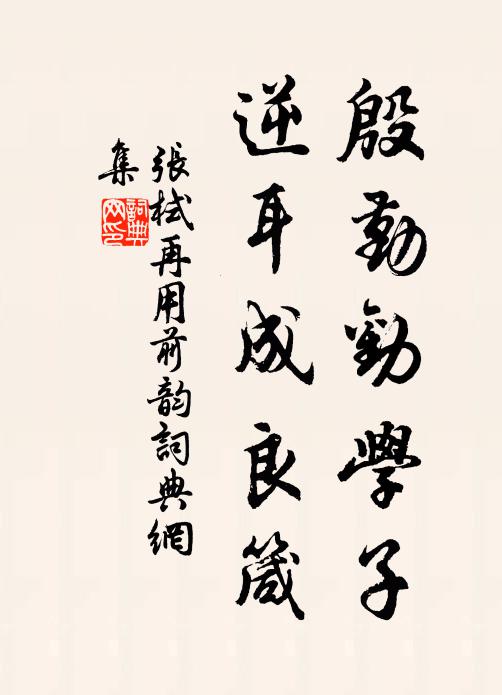 殷勤勸學子
逆耳成良箴
張栻再用前韵詞典網
集
詞典
网印